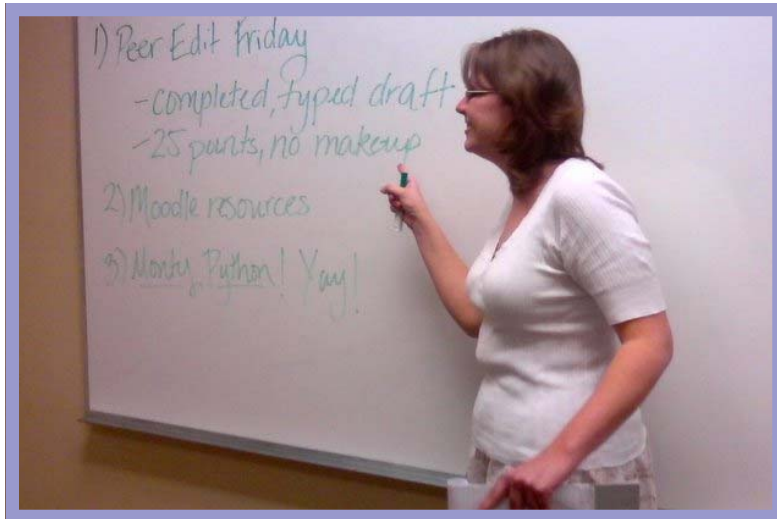 1) Peer Edit Friday
-completed, typed draft
-25 points, no makeup
2) Moodle resources
3) Monty Python! Yay!